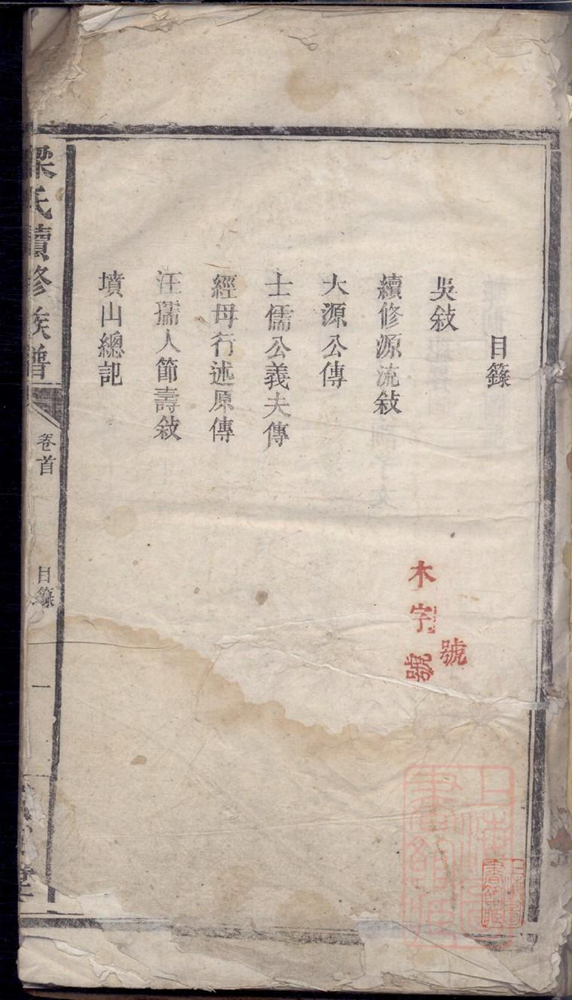 目錄
吳敍
續修源流敍
大源公傳
士儒公義夫傳
經母行述原傳
汪孺人節壽敍
墳山總記
梁氏續修族譜
卷首
目錄
一
木字號
號